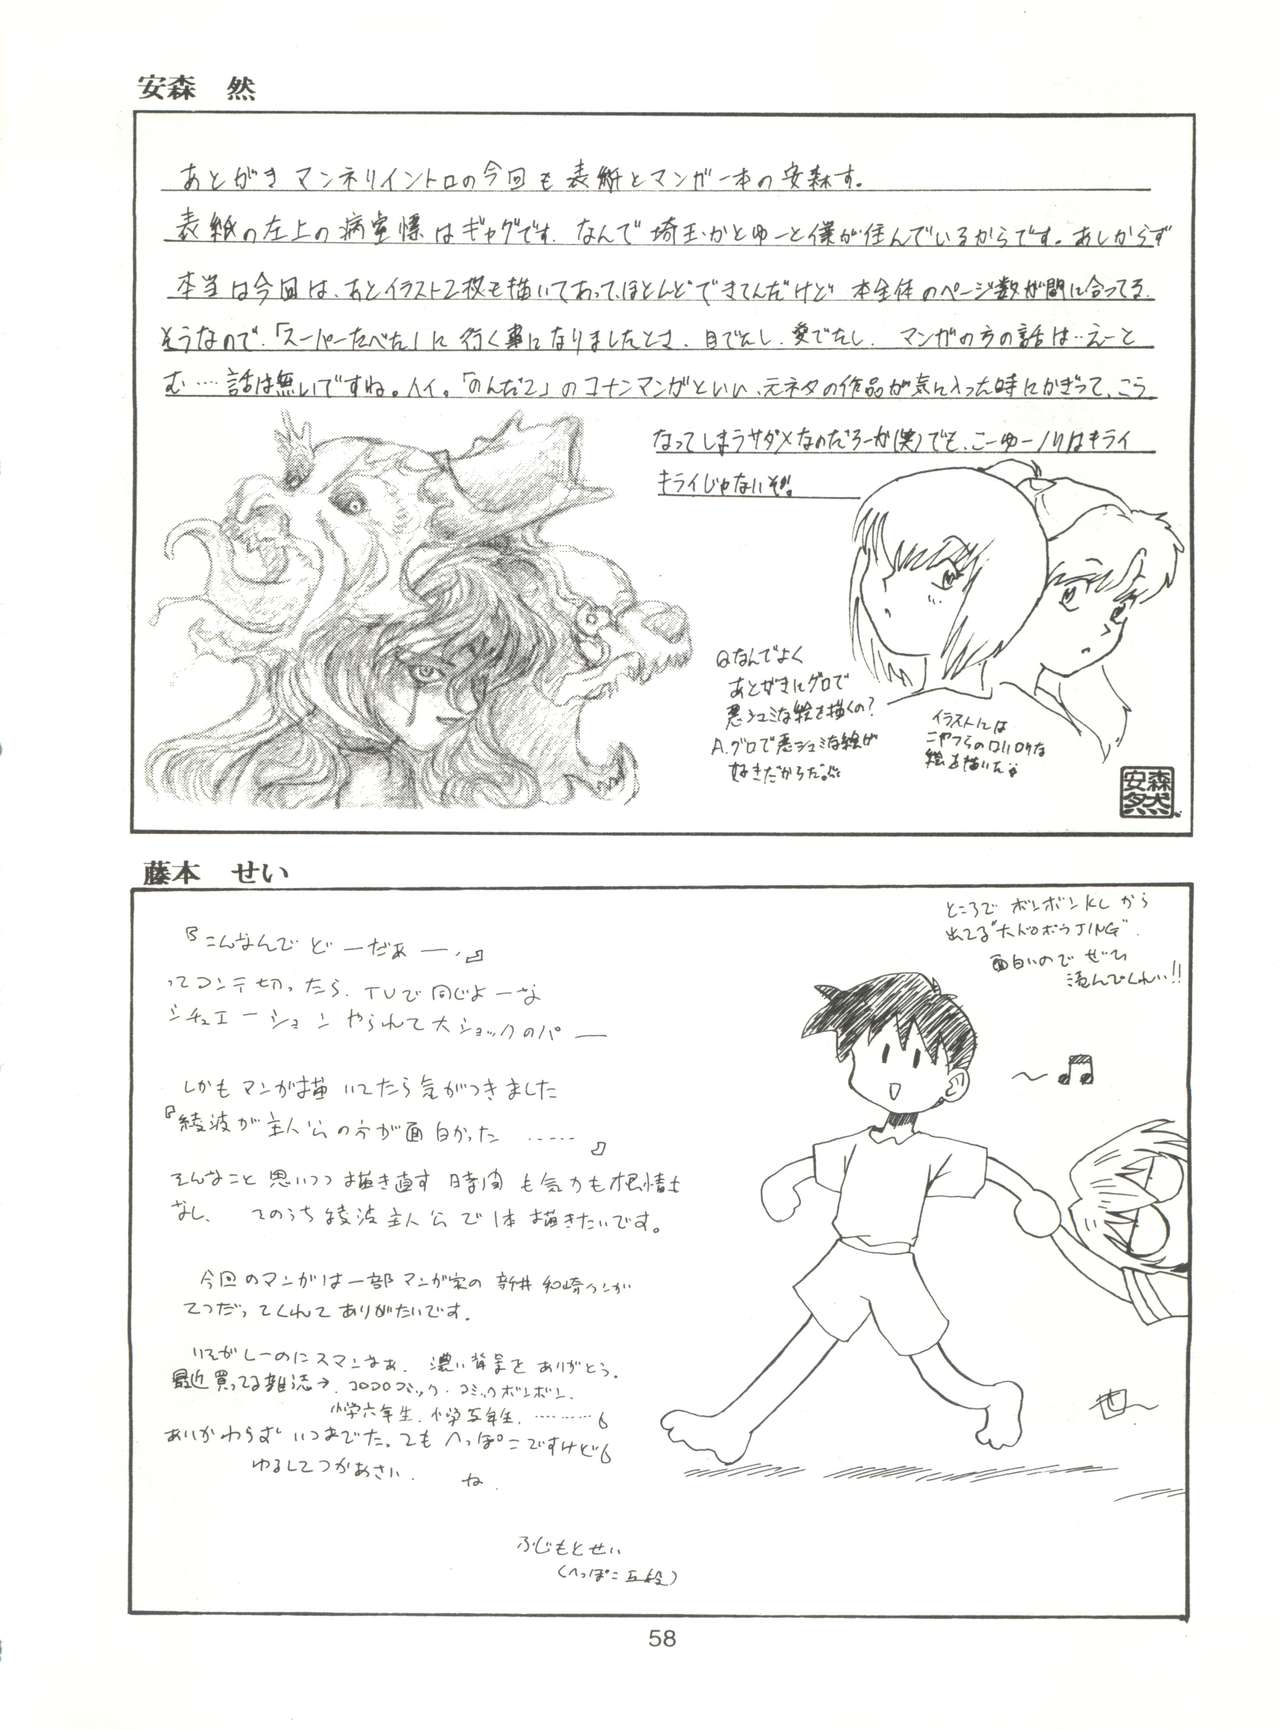 安森 然
あとがき マンネリイントロの今回も表紙とマンガ一本の安森す。
表紙の左上の病室標はギャグです. なんで埼玉かとゆーと僕が住んでいるからです。あしからず
本当は今回は、あとイラスト2枚も描いてあって、ほとんどできてんだけど 本全体のページ数が間に合ってる.
そうなので、「スーパーたべた」に行く事になりましたとさ. 目でたし. 愛でたし. マンガの方の話は…えーと
む……話は無いですね。ハイ。「のんだ2」のコナンマンガといい、元ネタの作品が気に入った時にかぎって、こう
なってしまうサダメなのだろーか(笑)でも、こーゆーノリはキライ
キライじゃないぞ!!
Qなんでよく
あとがきにグロで
悪シュミな絵を描くの?
A.グロで悪シュミな絵が
好きだからだ。
イラストには
こやつらのいろいろな
絵を描いた
安森
然
藤本 せい
『こんなんでどーだぁー、』
ってコンテ切ったら、TVで同じよーな
シチュエーションやられて大ショックのパー
しかもマンが描いてたら気がつきました
『綾波が主人公の方が面白かった ……』
そんなこと思いつつ描き直す時間も気力も根性も
なし、 そのうち綾波主人公で1本描きたいです。
今回のマンガは一部マンガ家の新井和崎クンが
てつだってくれてありがたいです。
いそがしーのにスマンなぁ. 濃い背景をありがとう.
最近買ってる雑誌→. コロコロコミック・コミックボンボン.
小学六年生. 小学五年生. ………6
あいかわらずいつまでた。てもへっぽこですけど6
ゆるしてつかあさい. ね.
ふじもとせい
(へっぽこ五段)
ところでボンボンKCから
出てる"大ドロボウJING".
面白いのでぜひ
読んでくれい!!
58